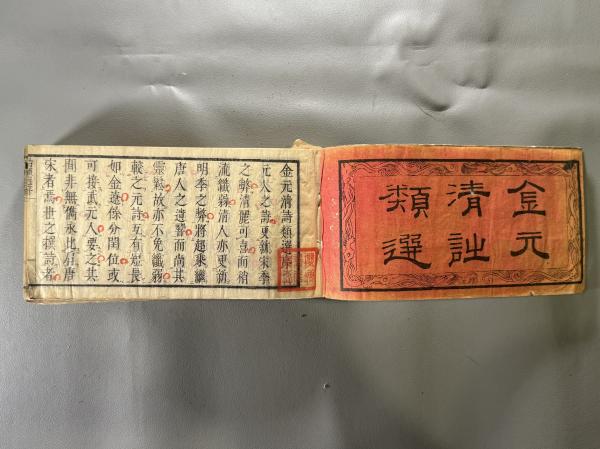 金元
清詩
類選
金元清詩類選序
元人之詩更宋季
之弊清麗可喜而稍
流纖弱清人亦更新
明季之弊將超乘繼
唐人之遺響而尚其
靈鬆故亦不免纖弱
較之元詩互有短長
如金遼係分閏位或
可接武元人要之其
間非無儁永比肩唐
宋者焉世之撰詩者